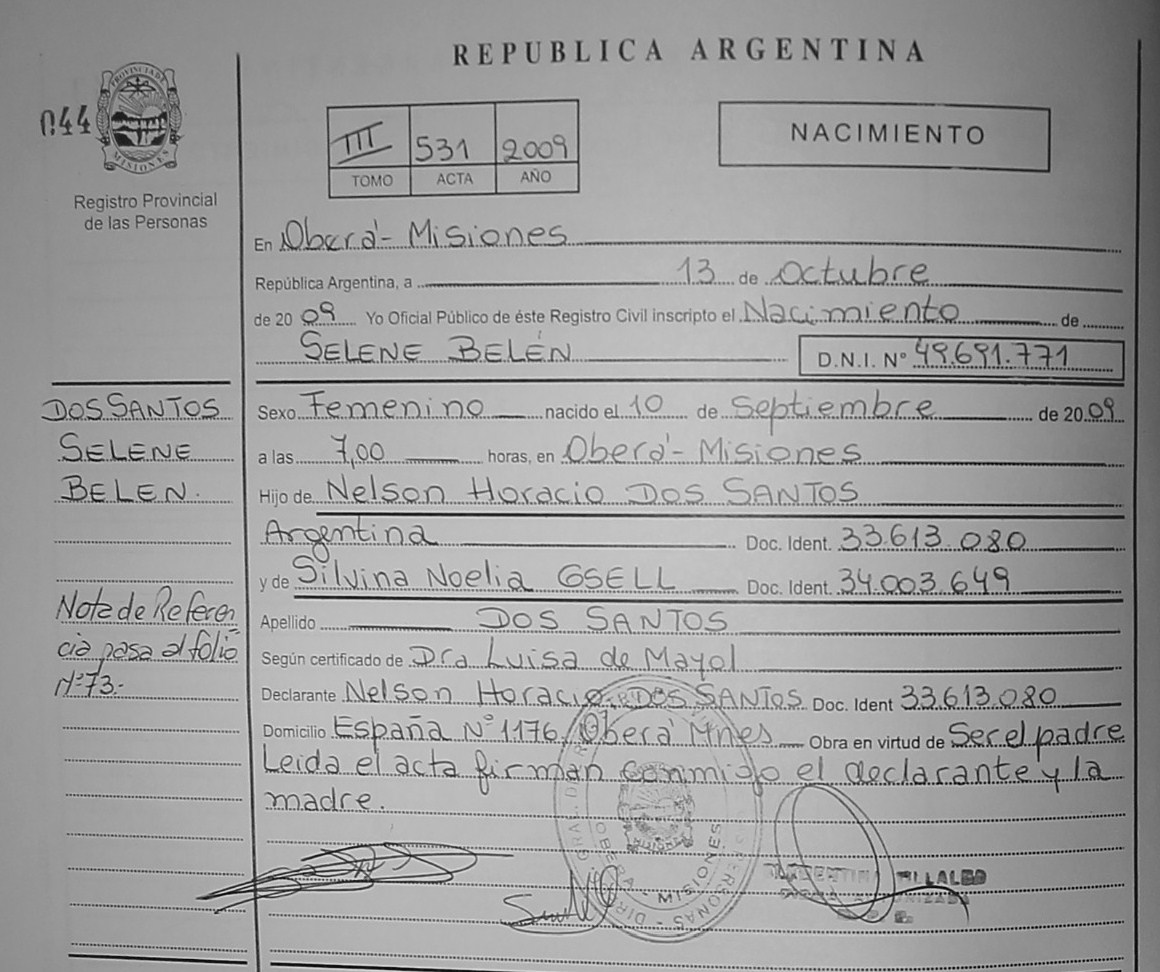 REPUBLICA ARGENTINA
044
PROVINCIA DE MISIONES
Registro Provincial
de las Personas
III 531 2009
TOMO ACTA AÑO
NACIMIENTO
En Oberá - Misiones
República Argentina, a 13 de Octubre
de 2009 Yo Oficial Público de éste Registro Civil inscripto el Nacimiento de
SELENE BELÉN D.N.I. Nº 49.691.771
DOS SANTOS
SELENE
BELEN.
Sexo Femenino nacido el 10 de Septiembre de 2009
a las 7,00 horas, en Oberá - Misiones
Hijo de Nelson Horacio DOS SANTOS
Argentina Doc. Ident. 33.613.080
y de Silvina Noelia GSELL Doc. Ident. 34.003.649
Apellido DOS SANTOS
Según certificado de Dra Luisa de Mayol
Declarante Nelson Horacio DOS SANTOS Doc. Ident 33.613.080
Domicilio España Nº 1176, Oberá Mnes Obra en virtud de Ser el padre
Leida el acta firman conmigo el declarante y la
madre.
Nota de Referen
cia pasa al folio
Nº 73.-
OBERA - MISIONES
PERSONAS